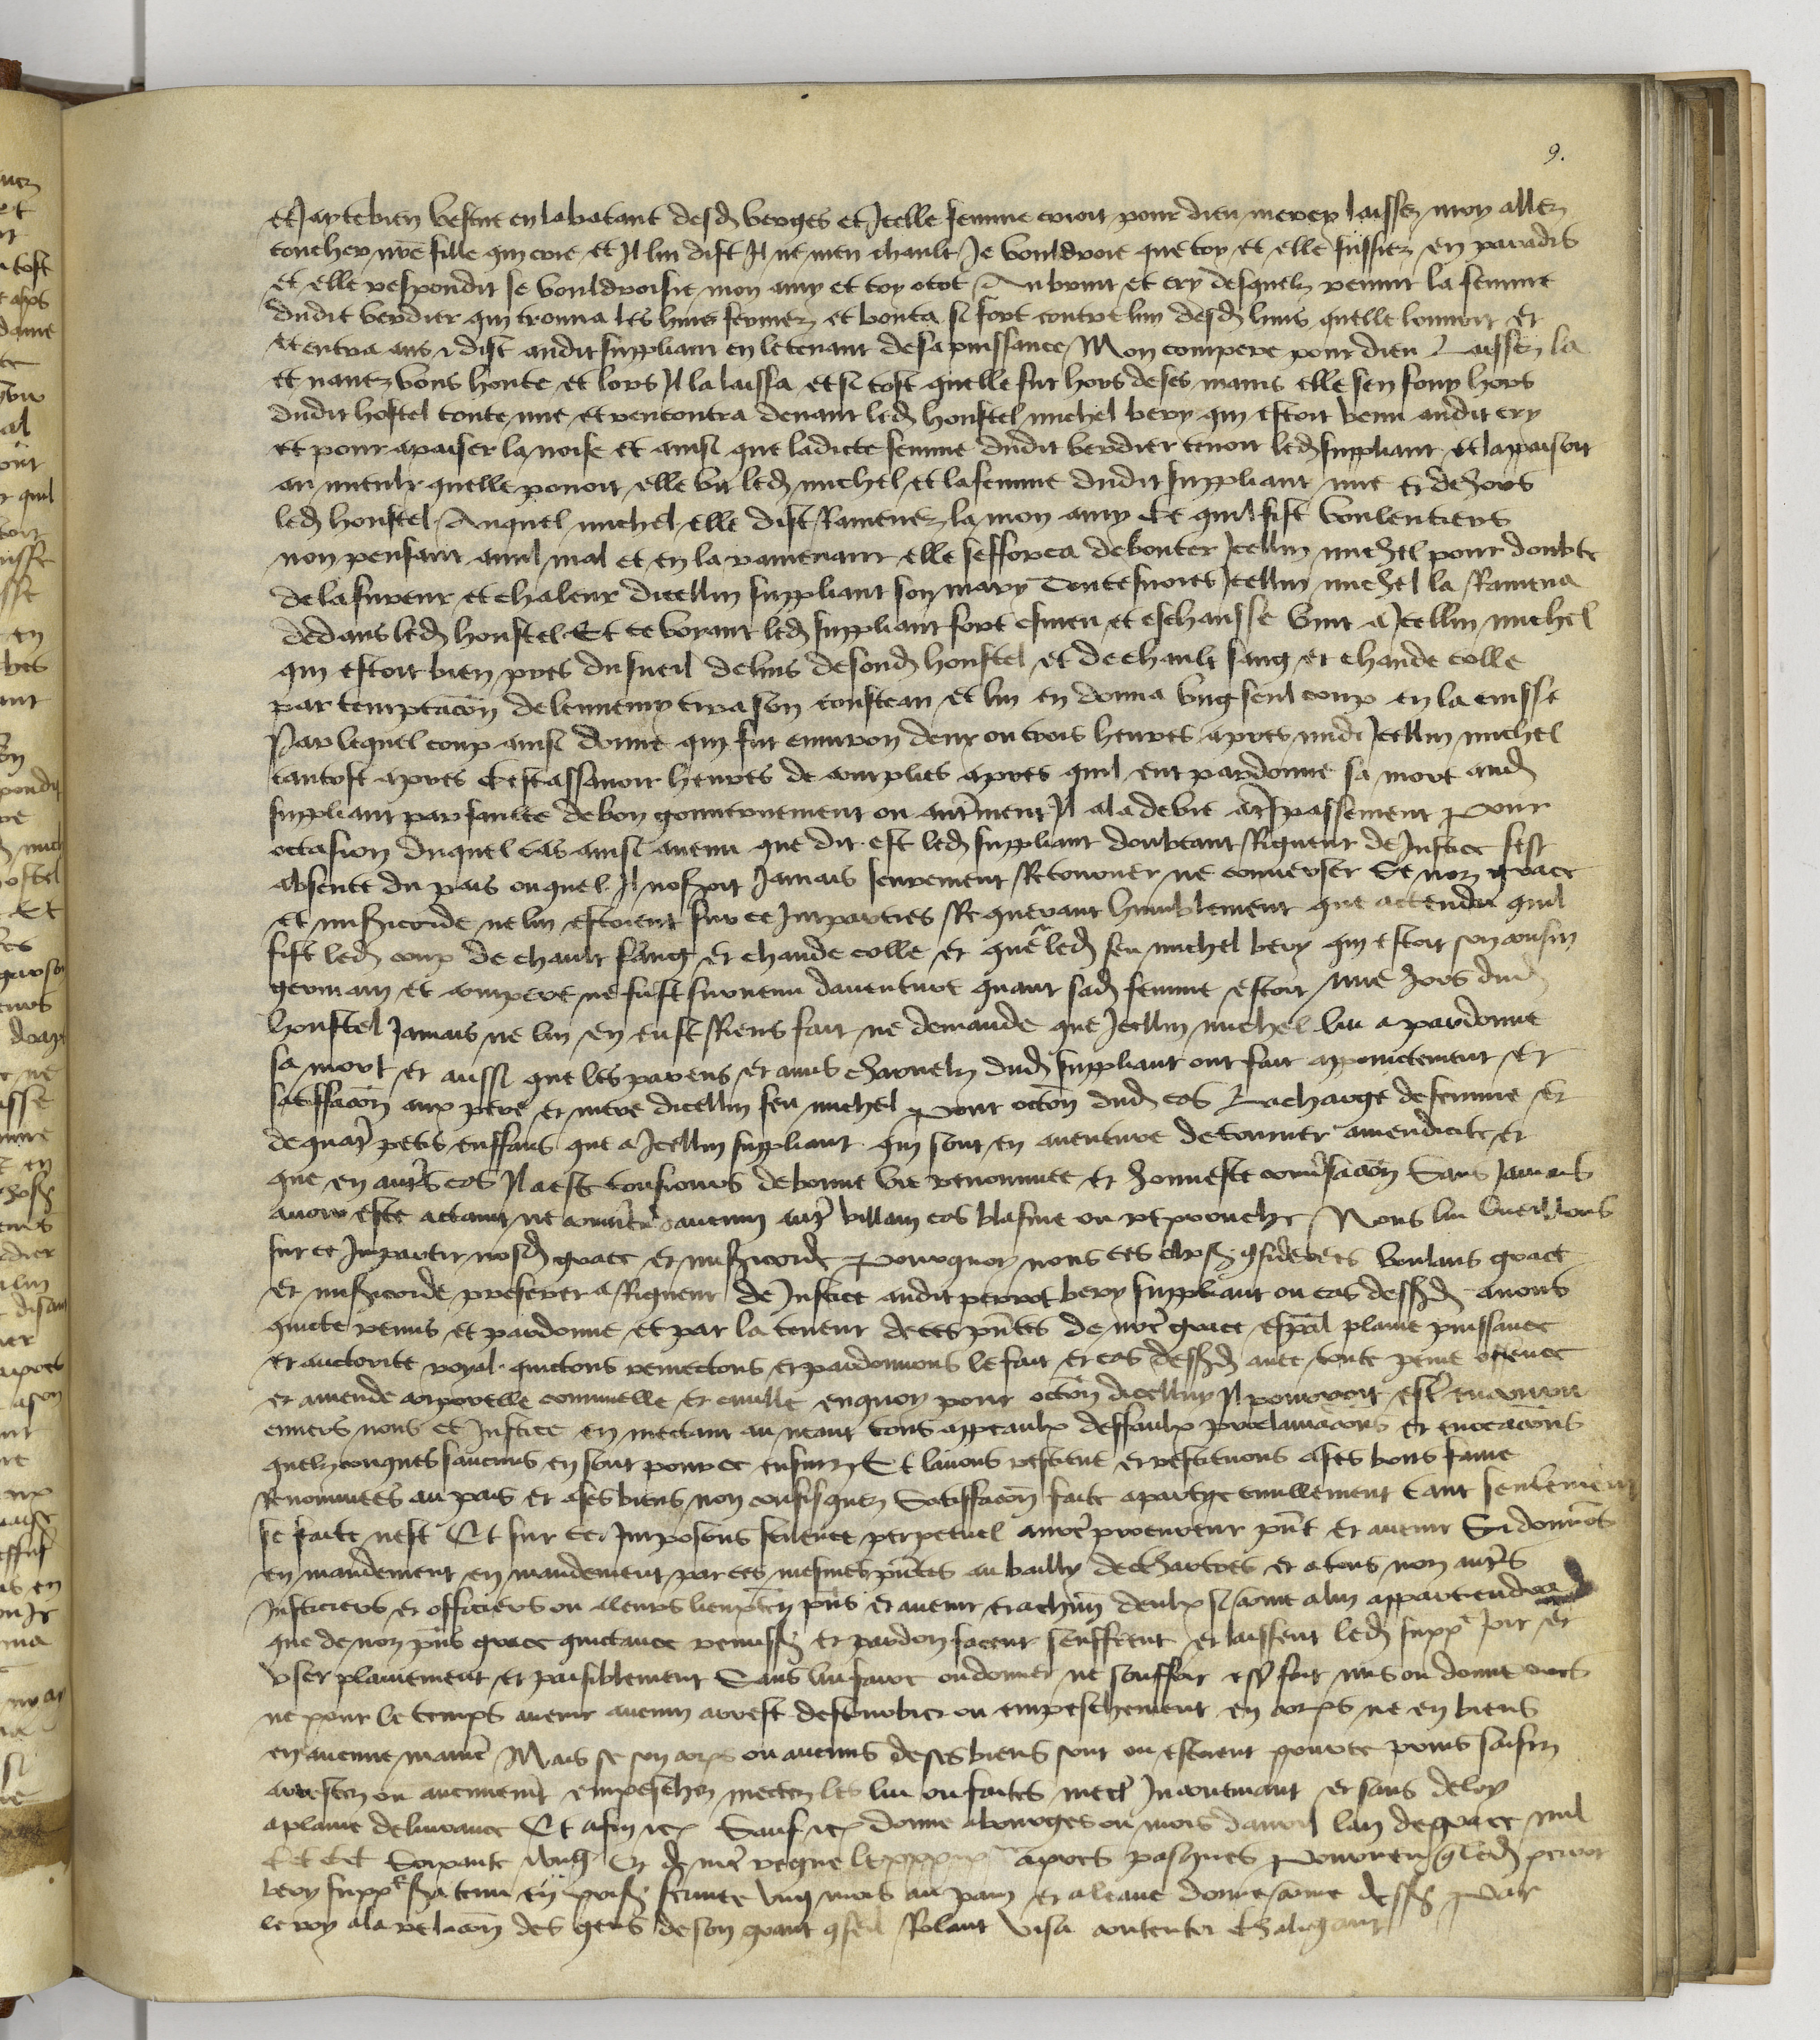 9.
et Jartebien vestue en la batant desd verges et Icelle femme crioit pour dieu mercy laissez moy aller
coucher nre fille qui crie et Il lui dist Il ne men chault Je vouldroie que toy et elle fussiez en paradis
et elle respondit se vouldroisie mon amy et toy otot Au bruit et cry desquelz vennit la femme
dudit verdier qui trouva les huis fermez et bouta si fort contre lun desd huis quelle louurit et
et entra ans & dist audit suppliant en le tenant de sa puissance Mon compere pour dieu Laissez la
et nauez vous honte et lors Il la laissa et si tost quelle fut hors de ses mains elle sen fouy hors
dudit hostel toute nue et rencontra deuant led houstel michel bery qui estoit venu audit cry
et pour apaiser la noise et ainsi que ladicte femme dudit verdier tenoit led suppliant et lapaisoit
au mieulx quelle pouoit elle vit led michel et la femme dudit suppliant nue et dehors
led houstel Auquel michel elle dist Ramenez la mon amy Ce quil fist voulentiers
non pensant a nul mal et en la ramenant elle sefforca de bouter Icellui michel pour doubte
de la fureur et chaleur dicellui suppliant son mary Toutesuoies Icellui michel la Ramena
dedans led houstel Et ce voyant led suppliant fort esmeu et eschausse vint a Icellui michel
qui estoit bien pres du sueil de luis de sond houstel et de chault sang et chaude colle
par temptacon de lennemy tira son cousteau et lui en donna vng seul coup en la cuisse
Par lequel coup ainsi donne qui fut enuiron deux ou trois heures apres midi Icellui michel
tantost apres Cestassauoir heures de complies apres quil eut pardonne sa mort aud
suppliant par faulte de bon gouuernement ou autrement Il ala de vie a trespassement Pour
occasion duquel cas ainsi auenu que dit est led suppliant doubtant Rigueur de Justice sest
absente du pais ouquel Il noseroit Jamais seurement Retourner ne conuerser se noz grace
et misericorde ne lui estoient sur ce Imparties Requerant humblement que attendu quil
fist led coup de chault sang et chaude colle et que led feu michel bery qui estoit son cousin
germain et compere ne fust suruenu dauenture quant sad femme estoit nue hors dud
houstel Jamais ne lui en eust Riens fait ne demande que Icellui michel lui a pardonne
sa mort et aussi que les parens et amis charnelz dud suppliant ont fait appointement et
satisfacon aux pere et mere dicellui feu michel pour occon dud cas La charge de femme et
de quatre petis enffans que a Icellui suppliant qui sont en auenture de tourner a mendicite et
que en autres cas Il a este tousiours de bonne vie renommee et honneste conuersacon Sans Jamais
auoir este actaint ne conuaincu daucun autre villain cas blasme ou reprouche Nous lui vueillons
sur ce Impartir nosd grace et misericorde Pourquoy nous ces choses considerees voulans grace
et misericorde preferer a Rigueur de Justice audit perrot bery suppliant ou cas dessusd auons
quicte remis et pardonne et par la teneur de ces pntes de nre grace espal plaine puissance
et auctorite royal quictons remectons et pardonnons le fait et cas dessusd auec toute peine offence
et amende corporelle criminelle et ciuille enquoy pour occon dicellui Il pourroit estre encouru
enuers nous et Justice en mectant au neant tous appeaulx deffaulx proclamacons et euocacons
quelzconques saucuns en sont pour ce ensuiz Et lauons restitue et restituons a ses bons fame
Renommees au pais et a ses biens non confisquez Satisfacon faite a partie ciuillement tant seulement
se faite nest Et sur ce Imposons scilence perpetuel a nre procureur pnt et auenir Si donnons
en mandement en mandement par ces mesmes pntes au bailly de chartres et a tous noz autres
Justiciers et officiers ou a leurs lieuxten pns et auenir et a chun deulx si come a lui appartendra
que de noz pns grace quictance remission et pardon facent seuffrent et laissent led suppt Joir et
vser plainement et paisiblement Sans lui faire ou donner ne souffrir estre fait mis ou donne ores
ne pour le temps auenir aucun arrest destourbier ou empeschement en corps ne en biens
en aucune maniere Mais se son corps ou aucuns de ses biens sont ou estoient pource prins saisiz
arrestez ou aucunement empeschez mectez les lui ou faites mectre Incontinant et sans deloy
a plaine deliurance Et afin &c Sauf &c donne a bourges ou mois dauril lan de grace mil
CCCC Soixante vng Et de nre regne le xxxix apres pasques Pourueu que led perrot
bery suppt sera tenu en prison fermee vng mois au pain et a leaue donne come dess Par
le roy a la relacon des gens de son grant conseil Rolant visa contentor Chaligaut